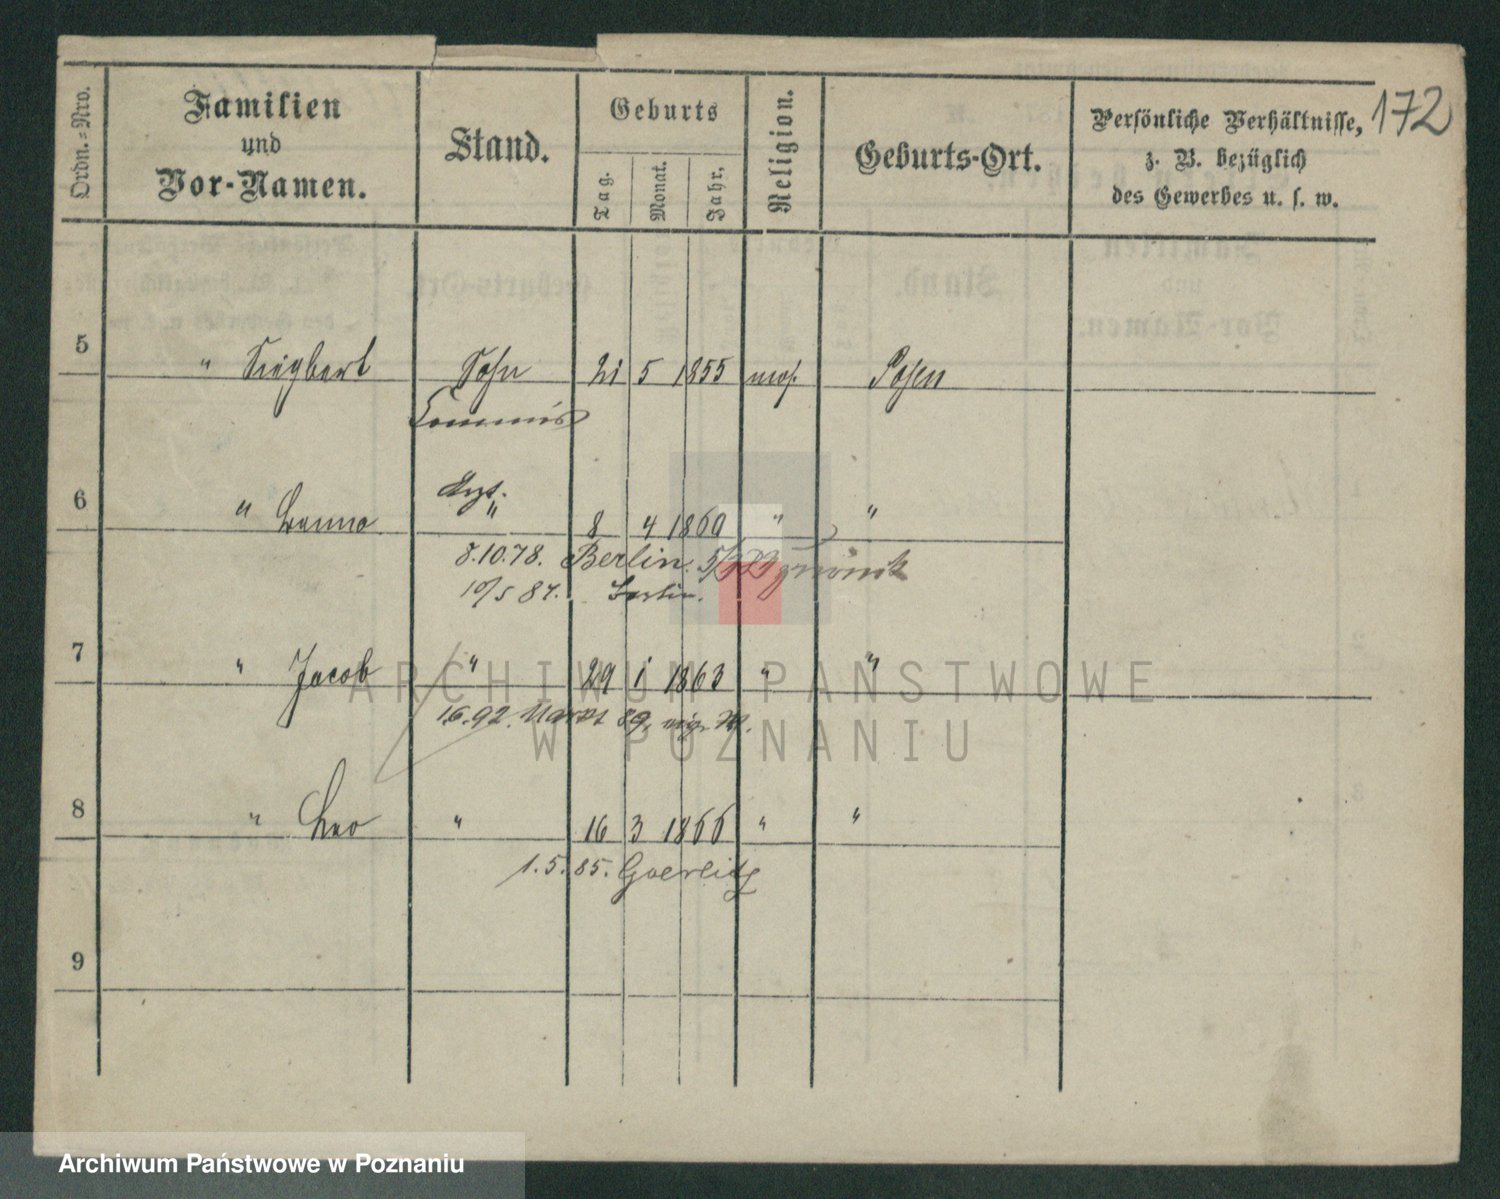 172
Ordn.=Nro.
Familien
und
Vor-Namen.
Stand.
Geburts
Tag.
Monat.
Jahr.
Religion.
Geburts-Ort.
Persönliche Verhältnisse,
z. B. bezüglich
des Gewerbes u. s. w.
5 " Siegbert Sohn 21 5 1855 mos. Posen
Commis
Arzt.
6 " Benno " 8 4 1860 " "
8.10.78. Berlin.
10/5 87. Berlin.
7 " Jacob " 29 1 1863 " "
1.6.92. Markt 89.
8 " Leo " 16 3 1866 " "
1.5.85. Goerlitz
9
ARCHIWUM PAŃSTWOWE
W POZNANIU
Archiwum Państwowe w Poznaniu